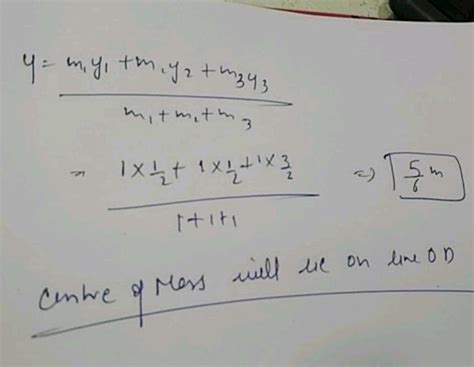 y = m₁y₁ + m₂y₂ + m₃y₃
m₁ + m₂ + m₃
= 1 × 1/2 + 1 × 1/2 + 1 × 3/2 ⇒ 5/6 m
1 + 1 + 1
Centre of Mass will lie on line OD